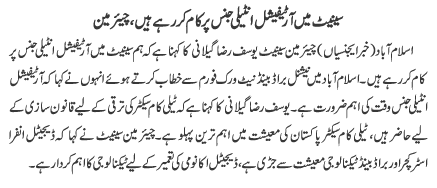 سینیٹ میں آرٹیفیشل انٹیلی جنس پر کام کر رہے ہیں، چیئرمین
اسلام آباد (خبر ایجنسیاں) چیئرمین سینیٹ یوسف رضا گیلانی کا کہنا ہے کہ ہم سینیٹ میں آرٹیفیشل انٹیلی جنس پر
کام کر رہے ہیں۔ اسلام آباد میں نیشنل براڈ بینڈ نیٹ ورک فورم سے خطاب کرتے ہوئے انہوں نے کہا کہ آرٹیفیشل
انٹیلی جنس وقت کی اہم ضرورت ہے۔ یوسف رضا گیلانی کا کہنا ہے کہ ٹیلی کام سیکٹر کی ترقی کے لیے قانون سازی کے
لیے حاضر ہیں، ٹیلی کام سیکٹر پاکستان کی معیشت میں اہم ترین پہلو ہے۔ چیئرمین سینیٹ نے کہا کہ ڈیجیٹل انفرا
اسٹرکچر اور براڈ بینڈ ٹیکنالوجی معیشت سے جڑی ہے، ڈیجیٹل اکانومی کی تعمیر کے لیے ٹیکنالوجی کا اہم کردار ہے۔